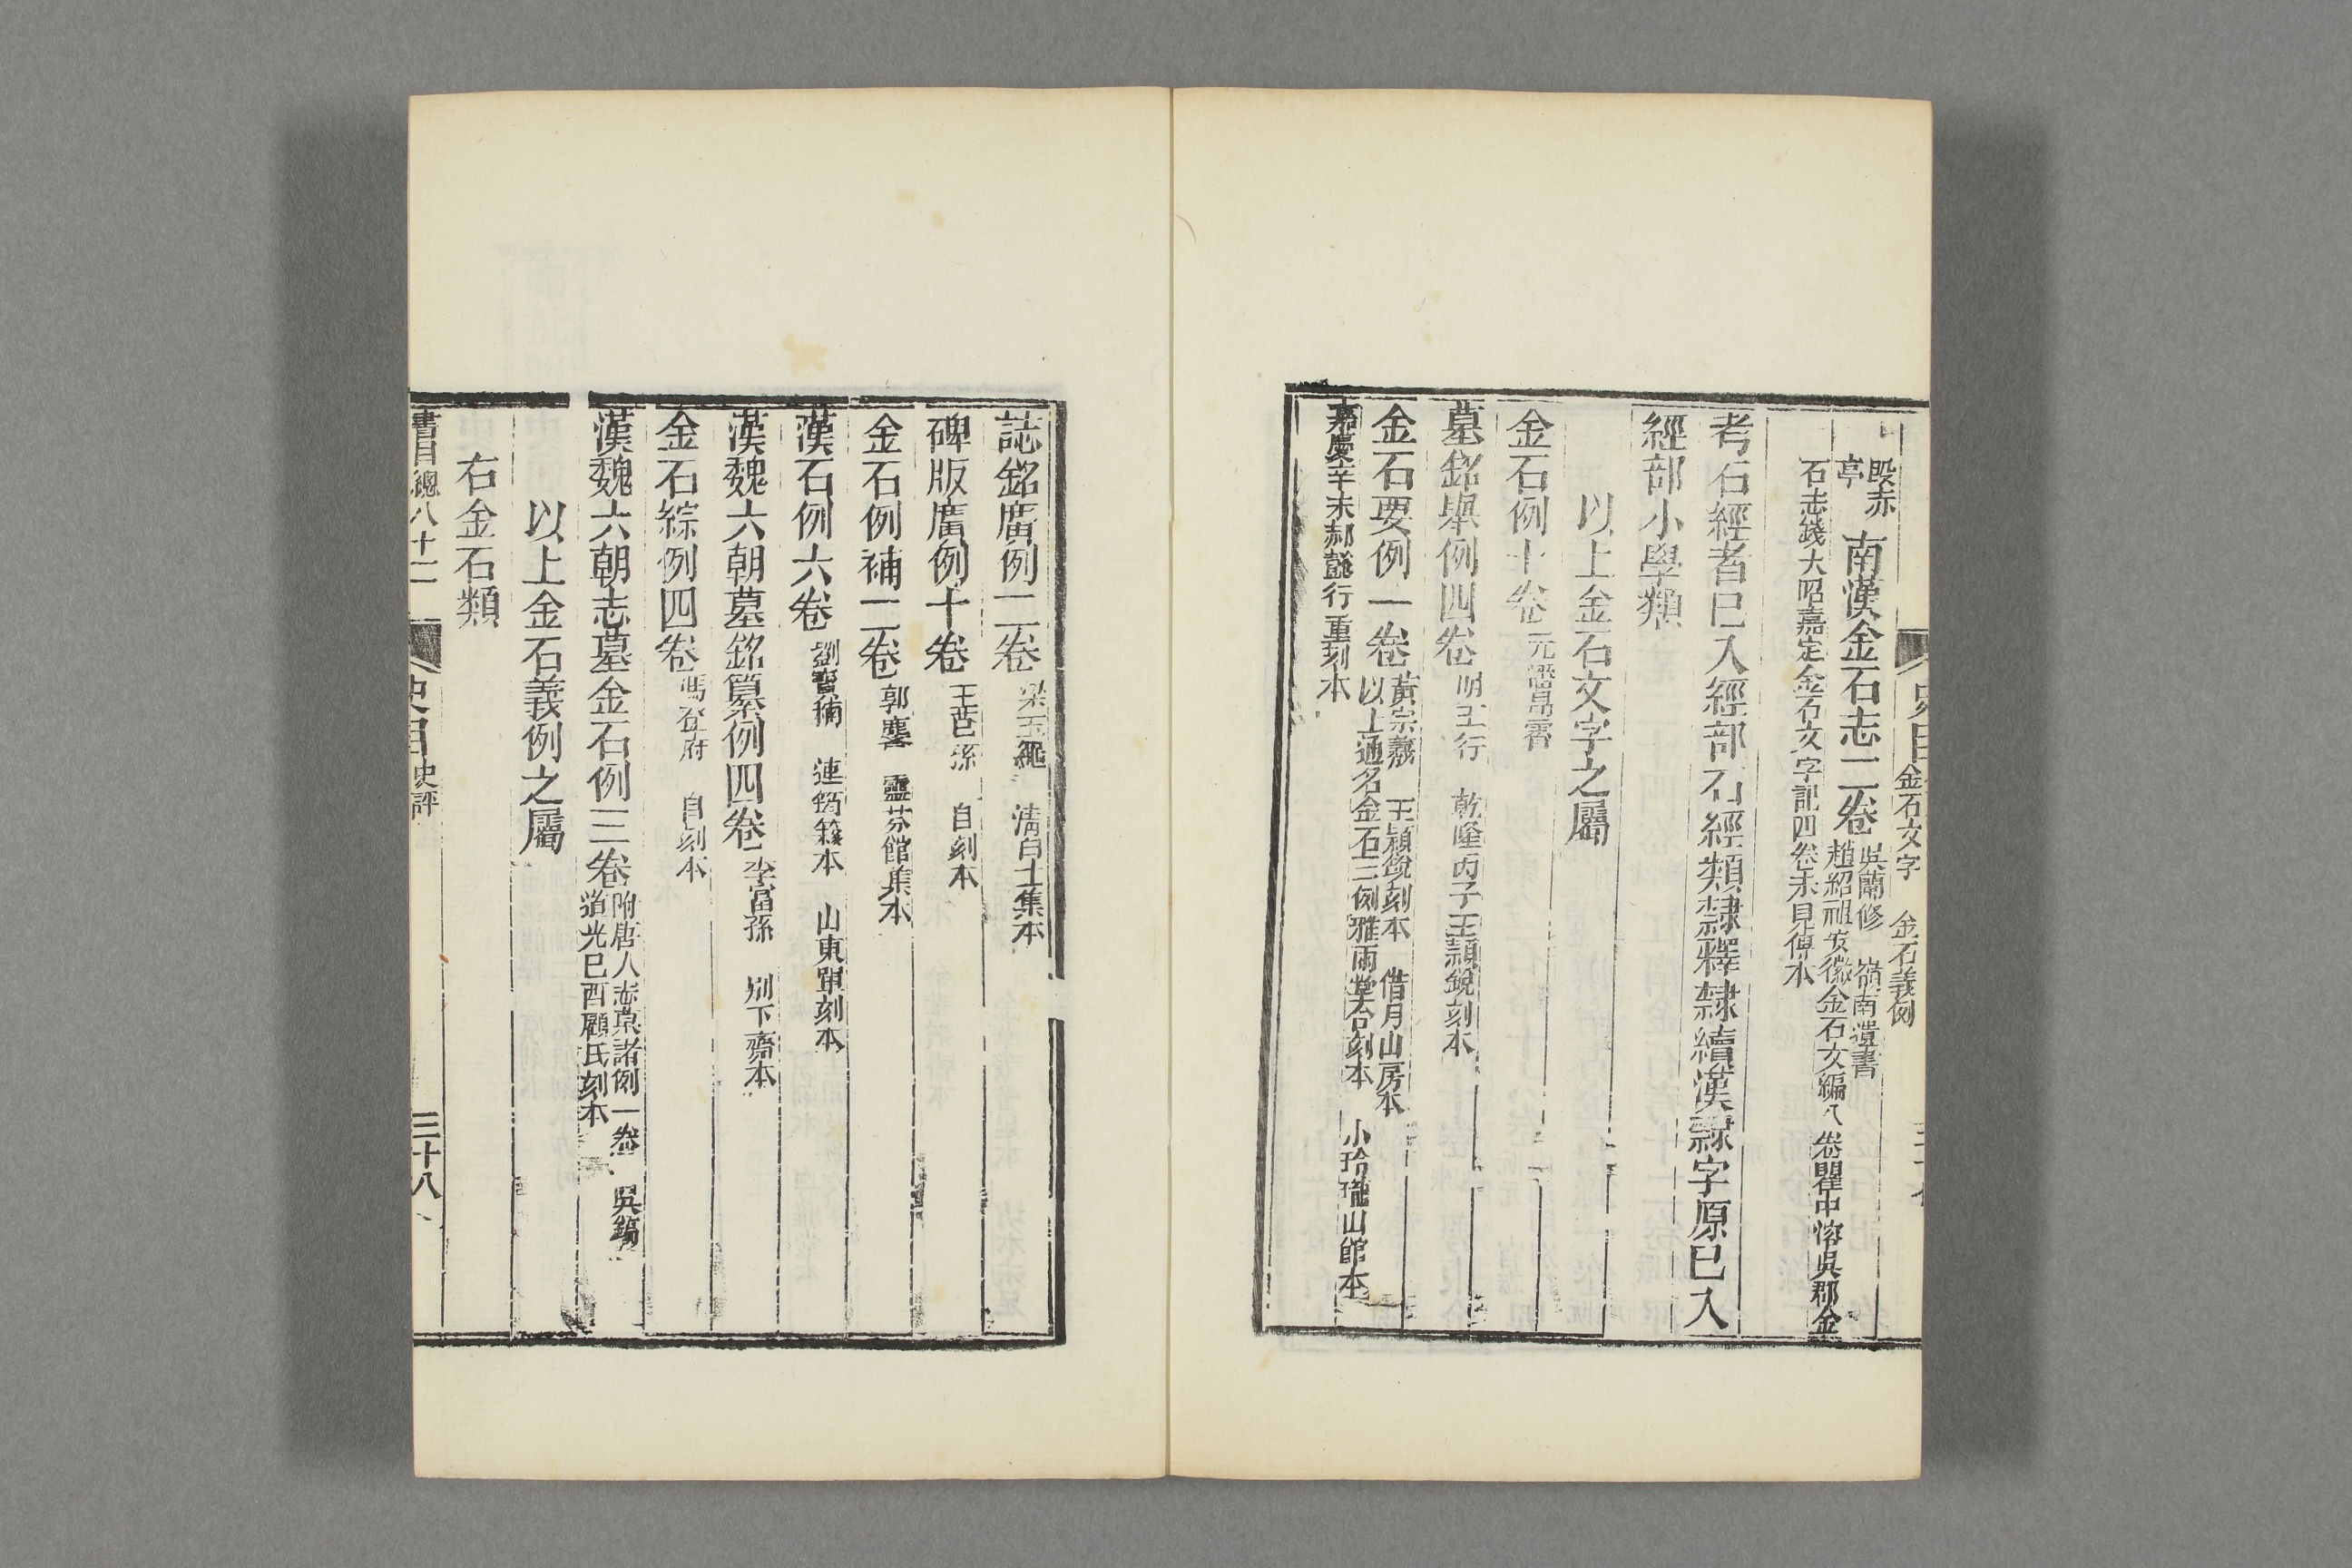 史目 金石文字 金石義例
段赤亭 南漢金石志二卷 吳蘭修 嶺南遺書
趙紹祖安徽金石文編八卷瞿中溶吳郡金
石志錢大昭嘉定金石文字記四卷未見傳本
考石經者已入經部石經類隸釋隸續漢隸字原已入
經部小學類
以上金石文字之屬
金石例十卷 元潘昂霄
墓銘舉例四卷 明王行 乾隆丙子王穎銳刻本
金石要例一卷 黃宗羲 王穎銳刻本 借月山房本
以上通名金石三例雅雨堂合刻本 小玲瓏山館本
嘉慶辛未郝懿行重刻本
誌銘廣例二卷 梁玉繩 清白士集本
碑版廣例十卷 王芑孫 自刻本
金石例補二卷 郭麐 靈芬館集本
漢石例六卷 劉寶楠 連筠簃本 山東單刻本
漢魏六朝墓銘纂例四卷 李富孫 別下齋本
金石綜例四卷 馮登府 自刻本
漢魏六朝志墓金石例三卷 附唐人志墓諸例一卷 吳鎬
道光己酉顧氏刻本
以上金石義例之屬
右金石類
書目總八十二 史目 史評 三十八